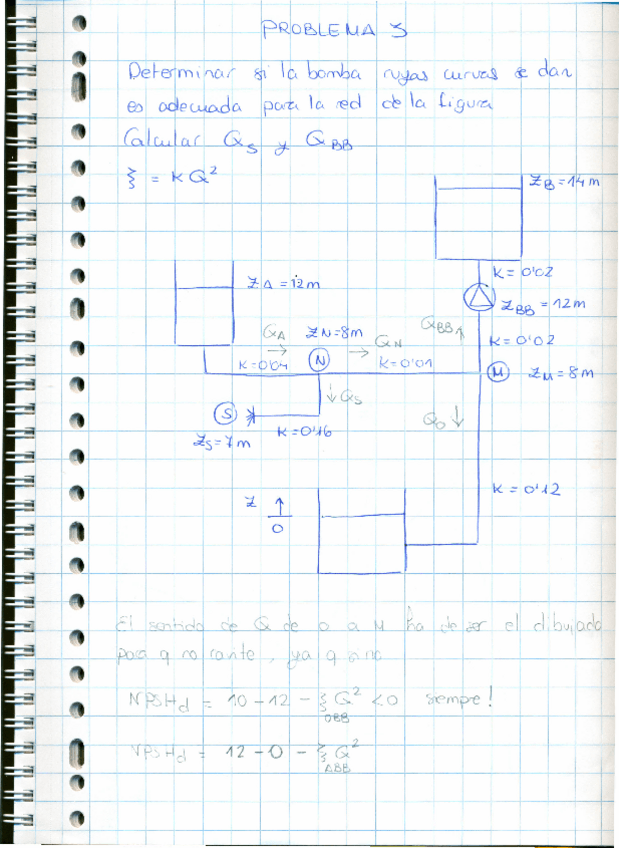 PROBLEMA 3
Determinar si la bomba cuyas curvas se dan
es adecuada para la red de la figura
Calcular Q_S y Q_BB
ξ = K Q²
Z_B = 14 m
K = 0'02
Z_BB = 12 m
Z_A = 12 m
Q_BB
K = 0'02
Q_A
Z_N = 8 m
Q_N
K = 0'04
N
K = 0'01
M
Z_M = 8 m
Q_S
S
K = 0'16
Q_0
Z_S = 7 m
K = 0'12
Z
0
El sentido de Q de 0 a M ha de ser el dibujado
para q no cante, ya q si no
NPSH_d = 10 - 12 - ξ Q² < 0 siempre!
OBB
NPSH_d = 12 - 0 - ξ Q²
ABB